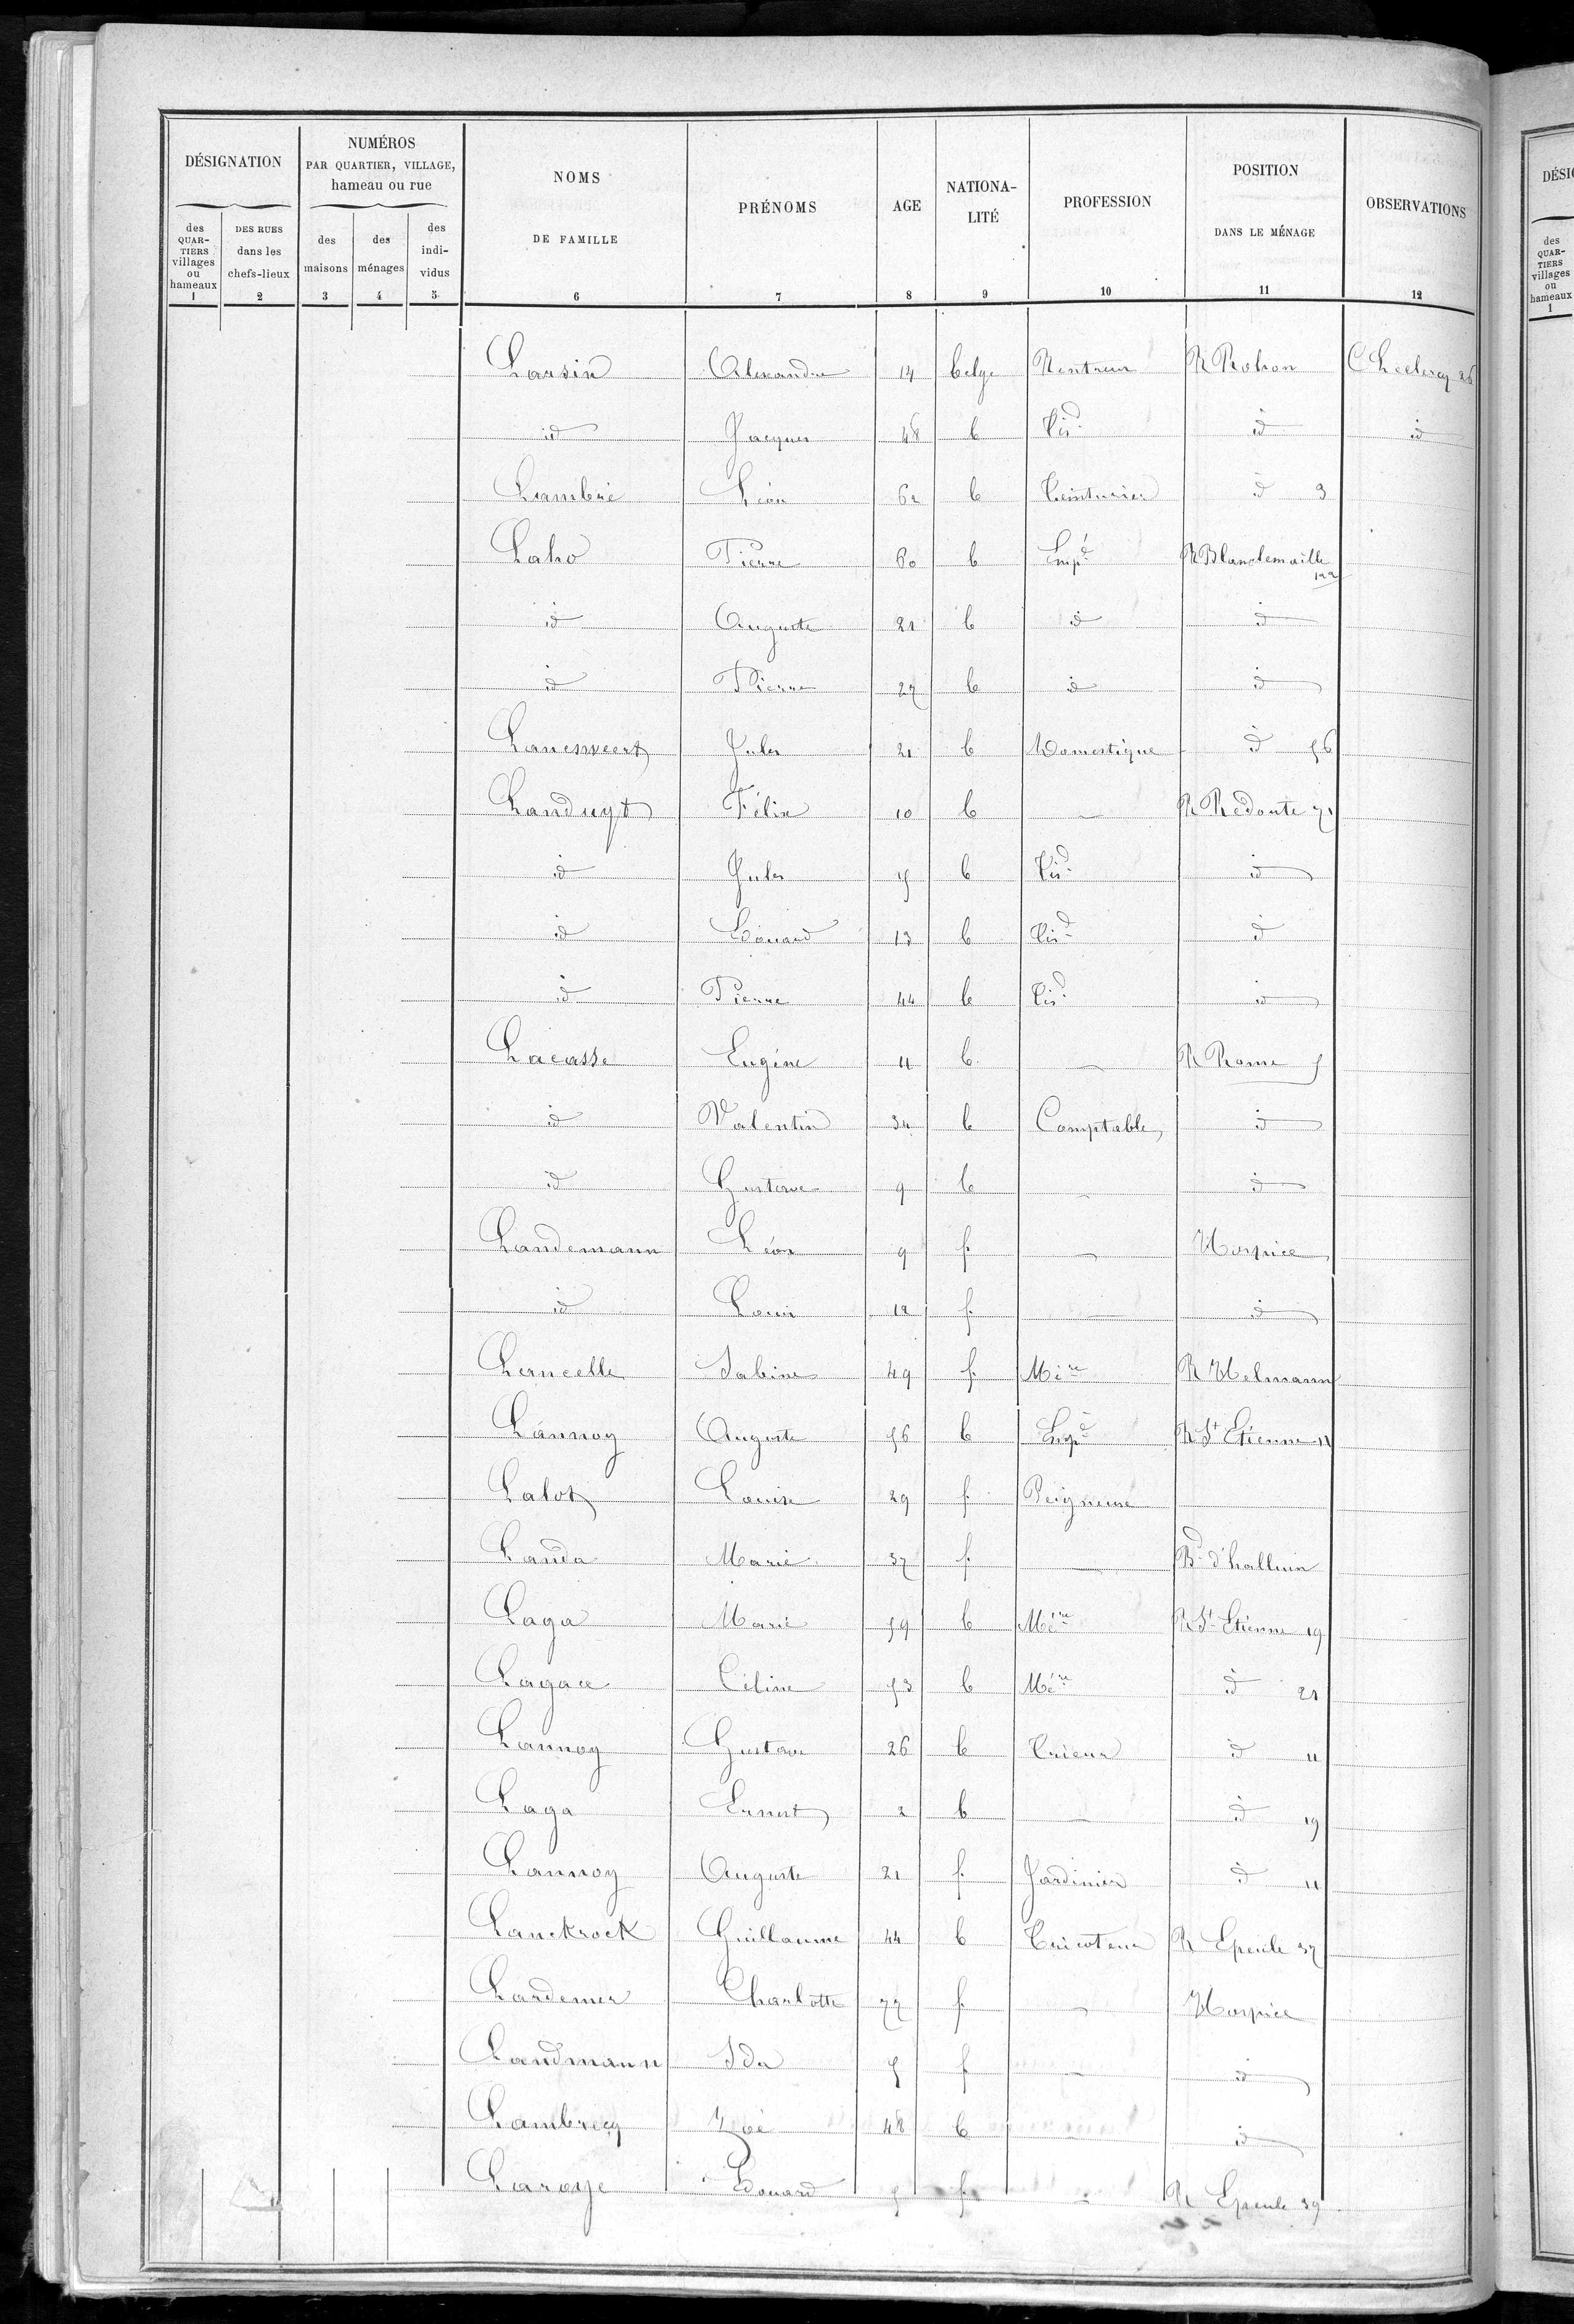 DÉSIGNATION
NUMÉROS
PAR QUARTIER, VILLAGE,
hameau ou rue
NOMS
DE FAMILLE
PRÉNOMS
AGE
NATIONA-
LITÉ
PROFESSION
POSITION
DANS LE MÉNAGE
OBSERVATIONS
des
QUAR-
TIERS
villages
ou
hameaux
DES RUES
dans les
chefs-lieux
des
maisons
des
ménages
des
indi-
vidus
1 2 3 4 5 6 7 8 9 10 11 12
Larsin Alexandre 14 belge Rentreur R Rohan C Leclercq 26
id Jacques 48 b Tisd id id
Lambré Léon 62 b Teinturier id 3
Laho Pierre 60 b Empé R Blanchemaille 122
id Auguste 21 b id id
id Pierre 27 b id id
Lanesweert Jules 21 b Domestique id 56
Landuyt Félix 10 b — R Redoute 71
id Jules 15 b Tisd id
id Edouard 13 b Tisd id
id Pierre 44 b Tisd id
Lacasse Eugène 11 b. — R Rome 5
id Valentin 34 b Comptable id
id Gustave 9 b — id
Landemann Léon 9 f. — Hospice
id Louis 12 f. — id
Lancelle Sabine 49 f. Mère R Helmann
Lannoy Auguste 56 b Empé R St Etienne 11
Lalot Louise 29 f. Peigneuse
Landa Marie 37 f. — Bd d'halluin
Laga Marie 59 b Mère R St Etienne 19
Lagace Céline 53 b Mère id 21
Lannoy Gustave 26 b Trieur id 11
Laga Ernest 2 b — id 19
Lannoy Auguste 21 f. Jardinier id 11
Lanckrock Guillaume 44 b Tricoteur R Epeule 37
Lardemer Charlotte 77 f. — Hospice
Landmann Ida 5 f — id
Lambrecq Zoé 48 b — id
Laroye Edouard 5 f. — R Epeule 39
DÉSI
des
QUAR-
TIERS
villages
ou
hameaux
1